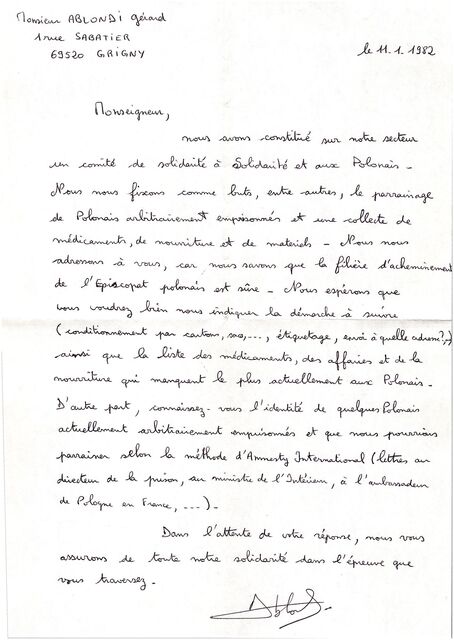 Monsieur ABLONDI Gérard
1 rue SABATIER
69520 GRIGNY
le 11.1.1982
Monseigneur,
nous avons constitué sur notre secteur
un comité de solidarité à Solidarité et aux Polonais -
Nous nous fixons comme buts, entre autres, le parrainage
de Polonais arbitrairement emprisonnés et une collecte de
médicaments, de nourriture et de materiels - Nous nous
adressons à vous, car nous savons que la filière d'acheminement
de l'Episcopat polonais est sûre - Nous espérons que
vous voudrez bien nous indiquer la démarche à suivre
(conditionnement par cartons, sacs, ..., étiquetage, envoi à quelle adresse?,..)
ainsi que la liste des médicaments, des affaires et de la
nourriture qui manquent le plus actuellement aux Polonais -
D'autre part, connaissez-vous l'identité de quelques Polonais
actuellement arbitrairement emprisonnés et que nous pourrions
parrainer selon la méthode d'Amnesty International (lettres au
directeur de la prison, au ministre de l'Intérieur, à l'ambassadeur
de Pologne en France, ...) -
Dans l'attente de votre réponse, nous vous
assurons de toute notre solidarité dans l'épreuve que
vous traversez -